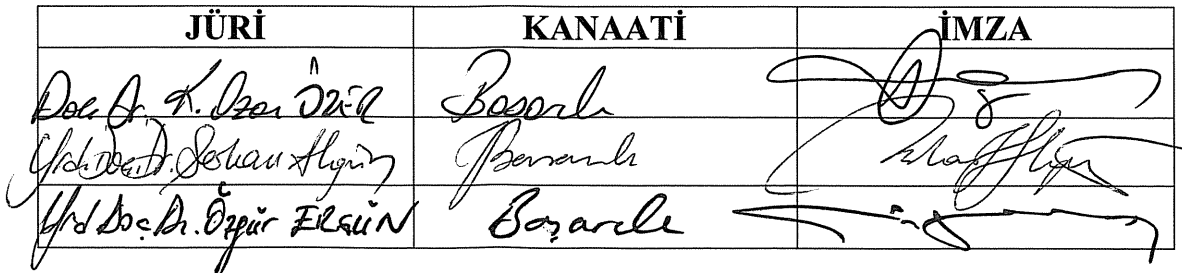 JÜRİ KANAATİ İMZA
Doç. Dr. K. Ozan ÖZER Başarılı
Yrd. Doç. Dr. Serhan Başarılı
Yrd. Doç. Dr. Özgür ERGÜN Başarılı